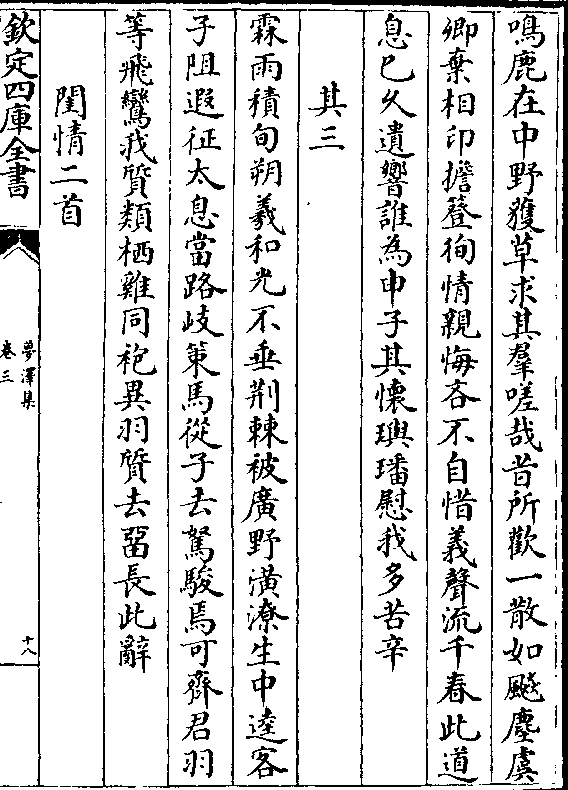 鳴鹿在中野獲草求其羣嗟哉昔所歡一散如飈塵虞
卿棄相印擔簦徇情親悔吝不自惜義聲流千春此道
息已久遺響誰為申子其懷璵璠慰我多苦辛
其三
霖雨積旬朔羲和光不垂荆棘被廣野潢潦生中逵客
子阻遐征太息當路岐策馬從子去駑駿焉可齊君羽
等飛鸞我質類栖雞同袍異羽質去留長此辭
閨情二首
欽定四庫全書
夢澤集
卷三
十八